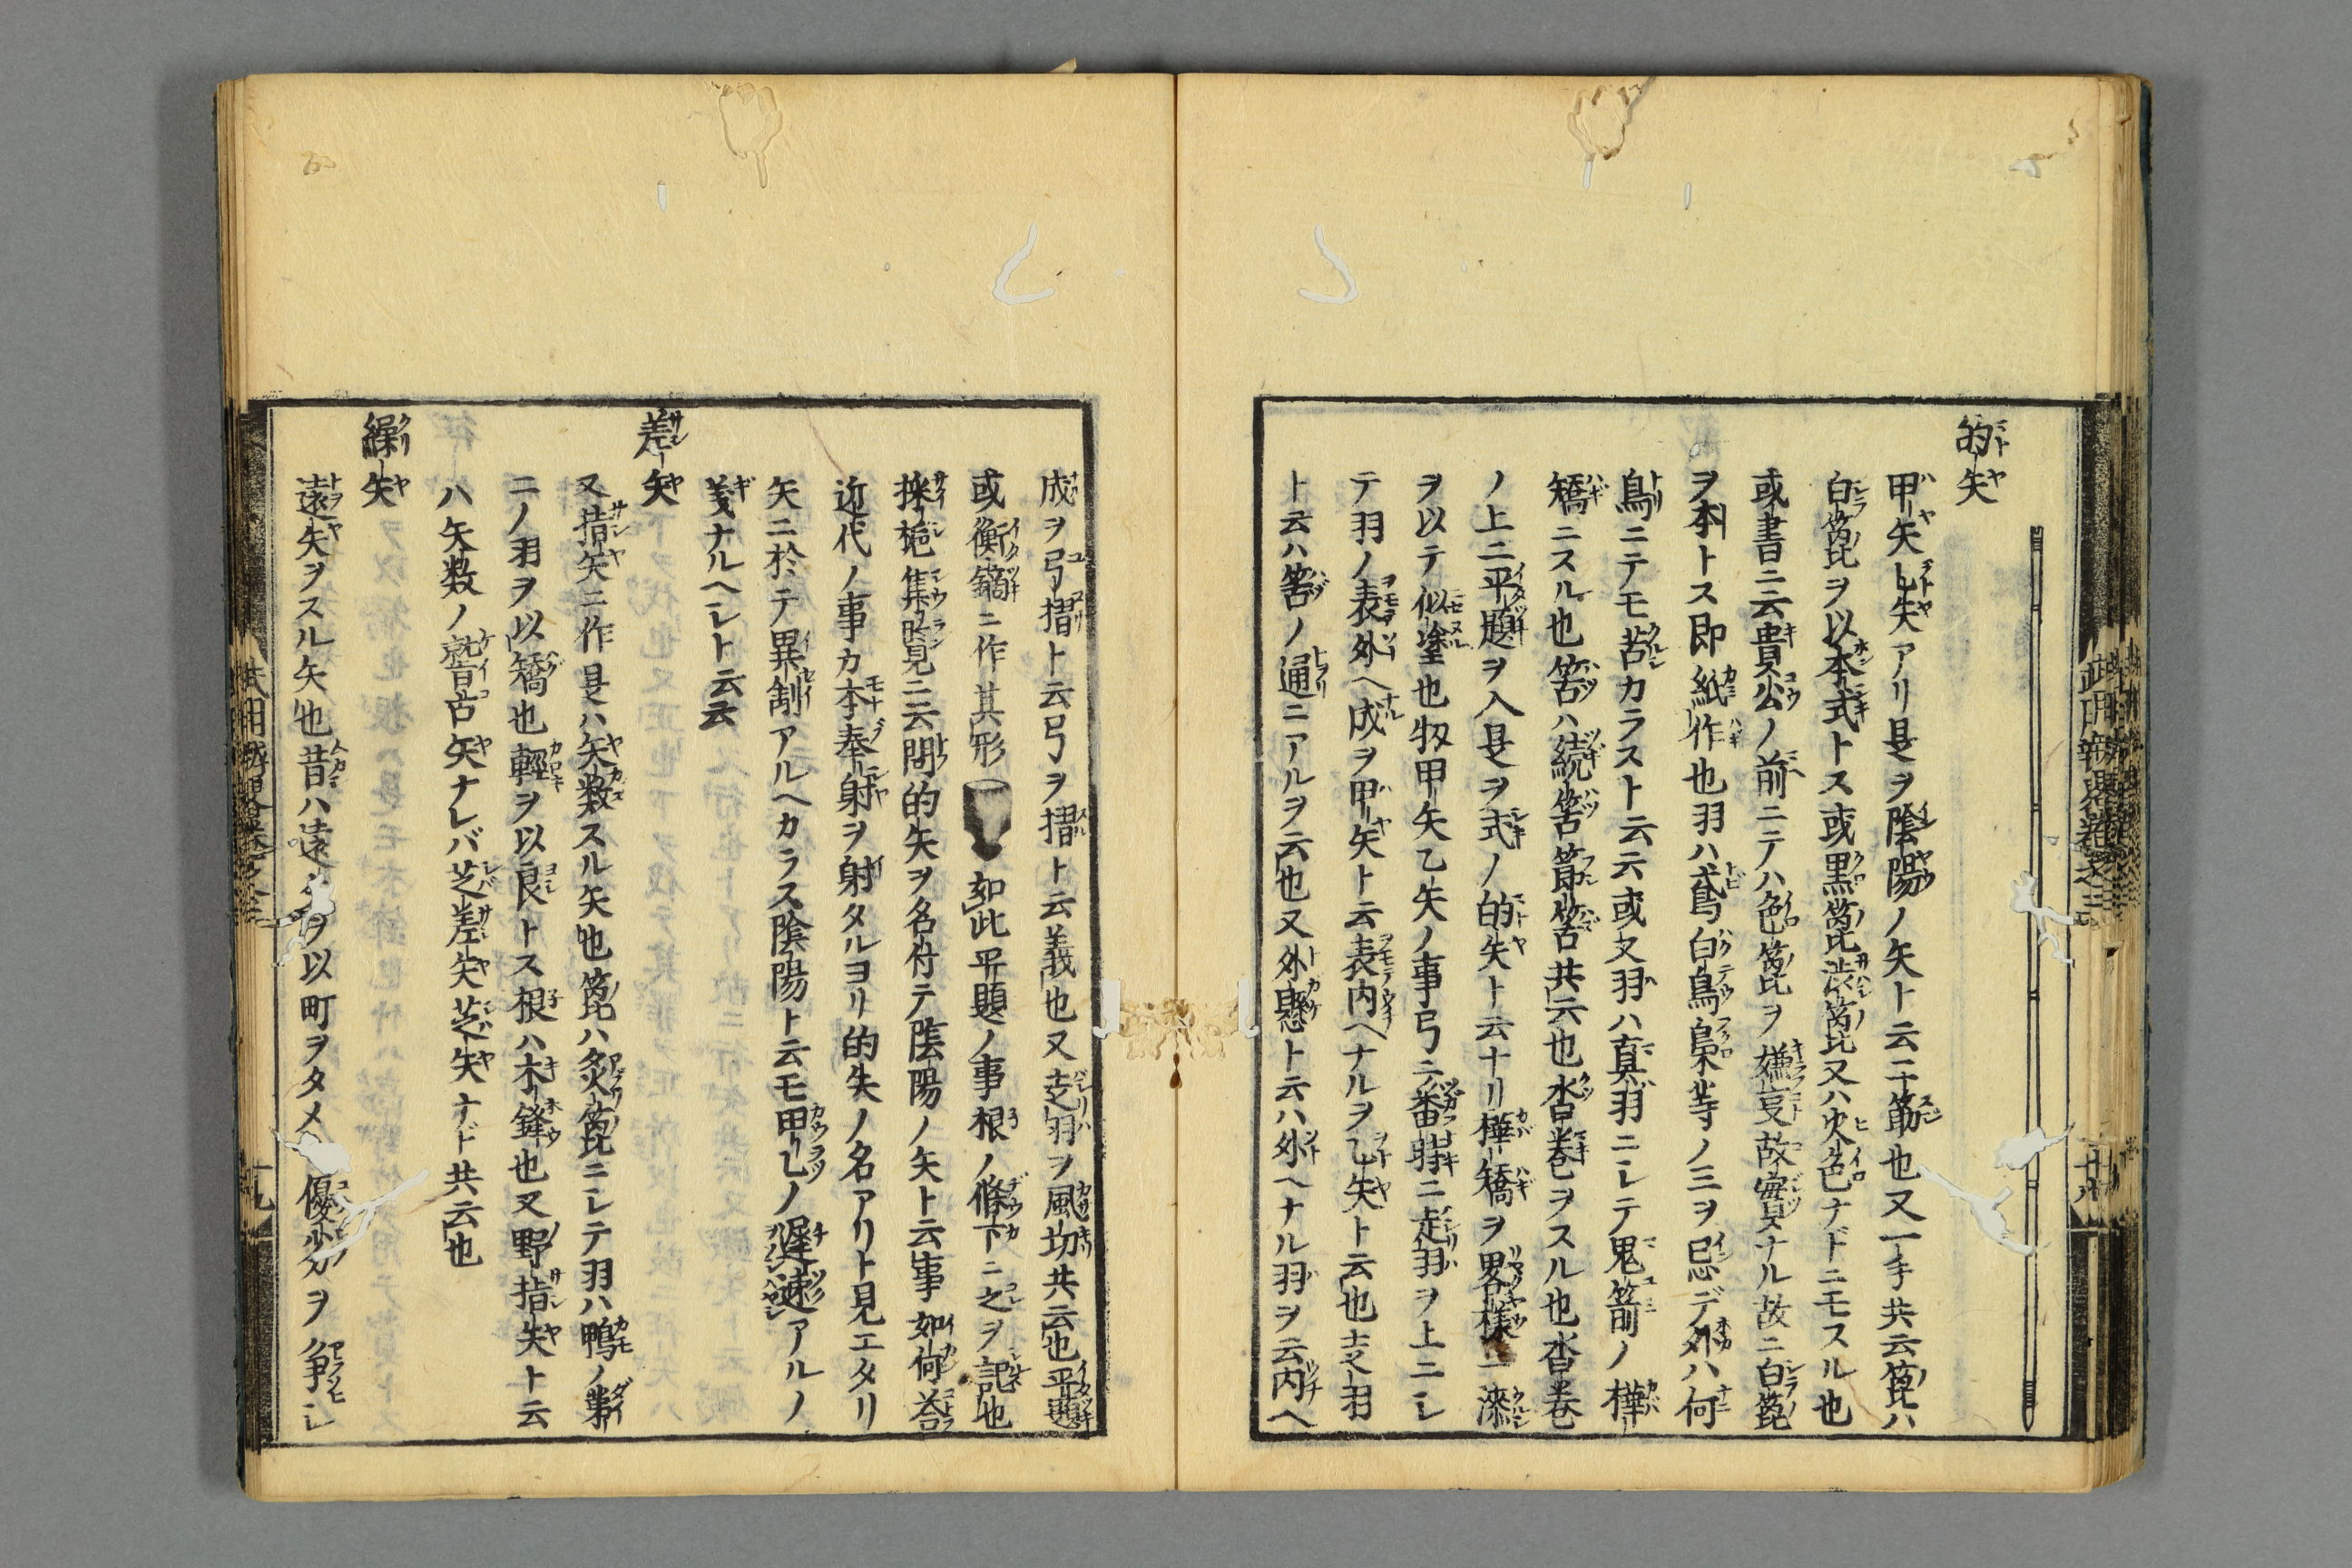 的矢
甲矢乙矢アリ是ヲ陰陽ノ矢ト云二筋也又一手共云箆ハ
白箆ヲ以本式トス或黒箆渋箆又ハ火色ナドニモスル也
或書ニ云貴公ノ前ニテハ色箆ヲ嫌故実ナル故ニ白箆
ヲ本トス即紙作也羽ハ鳶白鳥梟等ノ三ヲ忌デ外ハ何
鳥ニテモ苦カラスト云云或文羽ハ真羽ニシテ鬼箭ノ樺
矯ニスル也筈ハ続筈節筈共云也沓巻ヲスル也沓巻
ノ上ニ平題ヲ入是ヲ式ノ的矢ト云ナリ樺矯ヲ畧様ニ漆
ヲ以テ似塗也扨甲矢乙矢ノ事弓ニ番時ニ走羽ヲ上ニシ
テ羽ノ表外ヘ成ヲ甲矢ト云表内ヘナルヲ乙矢ト云也走羽
ト云ハ筈ノ通ニアルヲ云也又外懸ト云ハ外ヘナル羽ヲ云内ヘ
成ヲ弓摺ト云弓ヲ摺ト云義也又走羽ヲ風切共云也平題
或衡鏑ニ作其形如此平題ノ事根ノ條下ニ之ヲ記也
採梔集覧ニ云問的矢ヲ名付テ陰陽ノ矢ト云事如何荅
近代ノ事カ本奉射ヲ射タルヨリ的矢ノ名アリト見エタリ
矢ニ於テ異制アルヘカラス陰陽ト云モ甲乙ノ遅速アルノ
義ナルヘシト云云
差矢
又指矢ニ作是ハ矢数スル矢也箆ハ炙箆ニシテ羽ハ鴨ノ第
二ノ羽ヲ以矯也軽ヲ以良トス根ハ木鋒也又野指矢ト云
ハ矢数ノ稽古矢ナレバ芝差矢芝矢ナド共云也
繰矢
遠矢ヲスル矢也昔ハ遠矢ヲ以町ヲタメ優劣ヲ争シ